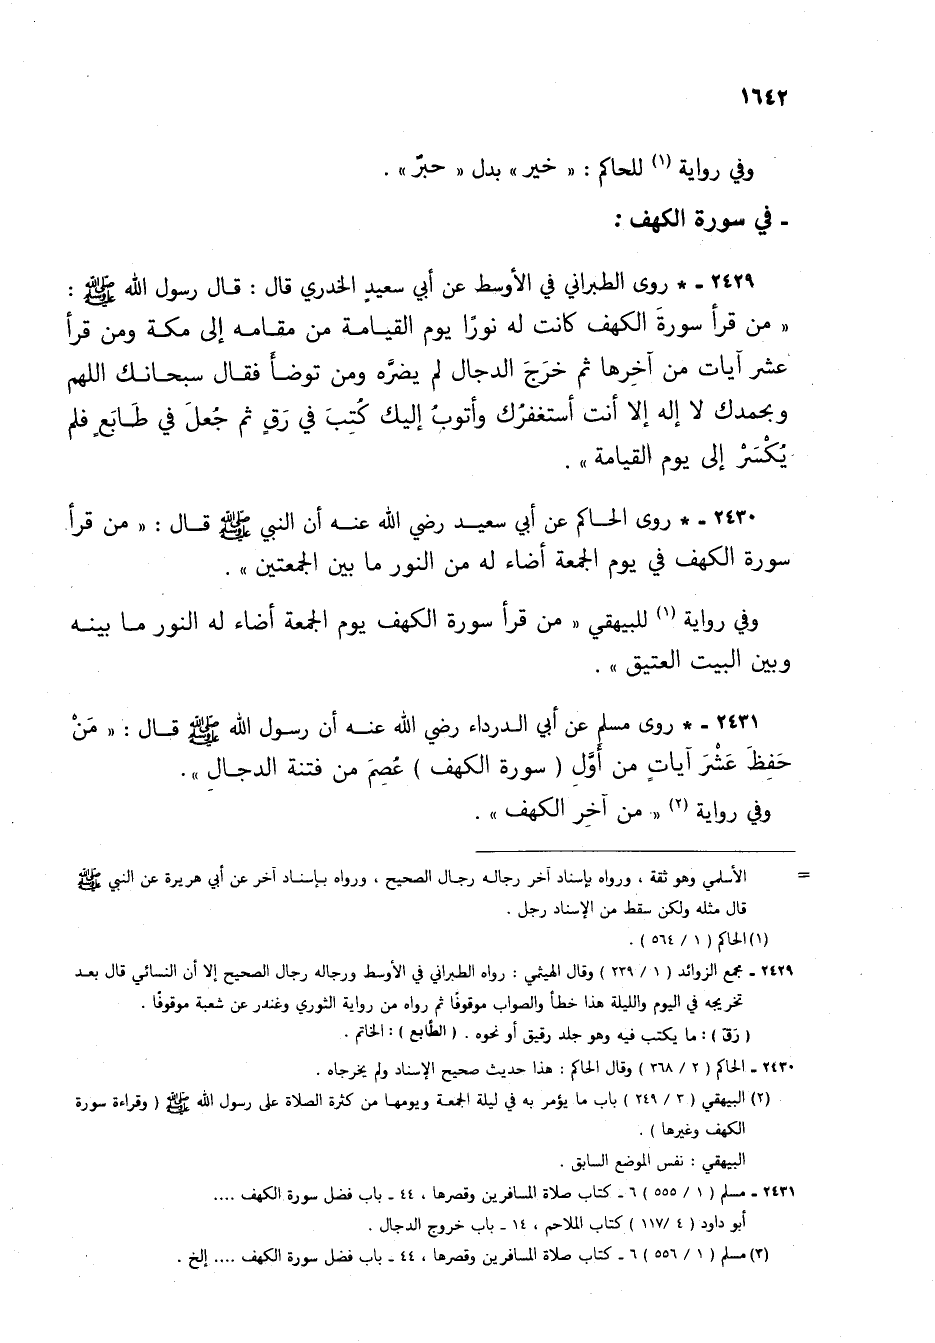 ١٦٤٢
وفي رواية (١) للحاكم : « خير » بدل « حبرّ » .
ـ في سورة الكهف :
٢٤٢٩ ـ * روى الطبراني في الأوسط عن أبي سعيدٍ الخدري قال : قال رسول الله ﷺ :
« من قرأ سورةَ الكهف كانت له نورًا يوم القيامة من مقامه إلى مكة ومن قرأ
عشر آيات من آخرها ثم خرَجَ الدجال لم يضرَّه ومن توضأَ فقال سبحانك اللهم
وبحمدك لا إله إلا أنت أستغفرُك وأتوبُ إليك كُتِبَ في رَقٍ ثم جُعلَ في طَابَعٍ فلم
يُكْسَرْ إلى يوم القيامة » .
٢٤٣٠ ـ * روى الحاكم عن أبي سعيد رضي الله عنه أن النبي ﷺ قال : « من قرأ
سورة الكهف في يوم الجمعة أضاء له من النور ما بين الجمعتين » .
وفي رواية (١) للبيهقي « من قرأ سورة الكهف يوم الجمعة أضاء له النور ما بينه
وبين البيت العتيق » .
٢٤٣١ ـ * روى مسلم عن أبي الدرداء رضي الله عنه أن رسول الله ﷺ قال : « مَنْ
حَفِظَ عَشْرَ آياتٍ من أَوَّلِ ( سورة الكهف ) عُصِمَ من فتنة الدجالِ » .
وفي رواية (٢) « من آخِر الكهف » .
= الأسلمي وهو ثقة ، ورواه بإسناد آخر رجاله رجال الصحيح ، ورواه بإسناد آخر عن أبي هريرة عن النبي ﷺ
قال مثله ولكن سقط من الإسناد رجل .
(١) الحاكم ( ١ / ٥٦٤ ) .
٢٤٢٩ ـ مجمع الزوائد ( ١ / ٢٣٩ ) وقال الهيثمي : رواه الطبراني في الأوسط ورجاله رجال الصحيح إلا أن النسائي قال بعد
تخريجه في اليوم والليلة هذا خطأ والصواب موقوفًا ثم رواه من رواية الثوري وغندر عن شعبة موقوفًا .
( رَقّ ) : ما يكتب فيه وهو جلد رقيق أو نحوه . ( الطَّابع ) : الخاتم .
٢٤٣٠ ـ الحاكم ( ٢ / ٣٦٨ ) وقال الحاكم : هذا حديث صحيح الإسناد ولم يخرجاه .
(٢) البيهقي ( ٣ / ٢٤٩ ) باب ما يؤمر به في ليلة الجمعة ويومها من كثرة الصلاة على رسول الله ﷺ ( وقراءة سورة
الكهف وغيرها ) .
البيهقي : نفس الموضع السابق .
٢٤٣١ ـ مسلم ( ١ / ٥٥٥ ) ٦ ـ كتاب صلاة المسافرين وقصرها ، ٤٤ ـ باب فضل سورة الكهف ....
أبو داود ( ٤ /١١٧ ) كتاب الملاحم ، ١٤ ـ باب خروج الدجال .
(٣) مسلم ( ١ / ٥٥٦ ) ٦ ـ كتاب صلاة المسافرين وقصرها ، ٤٤ ـ باب فضل سورة الكهف .... إلخ .